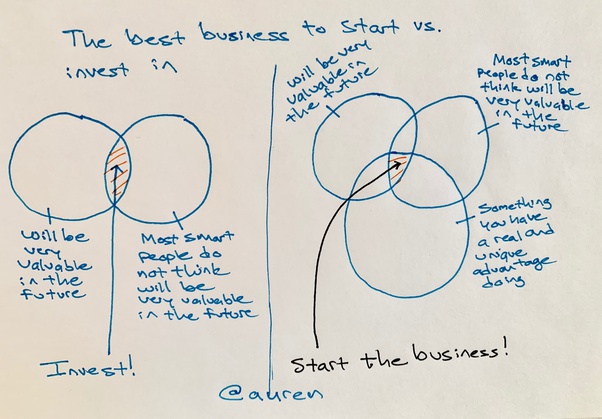 The best business to start vs.
invest in
will be
very
valuable
in the
future
Most smart
people do
not think
will be
very valuable
in the future
Invest!
will be very
valuable in
the future
Most smart
people do not
think will be
very valuable
in the
future
Something
you have
a real and
unique
advantage
doing
Start the business!
@auren